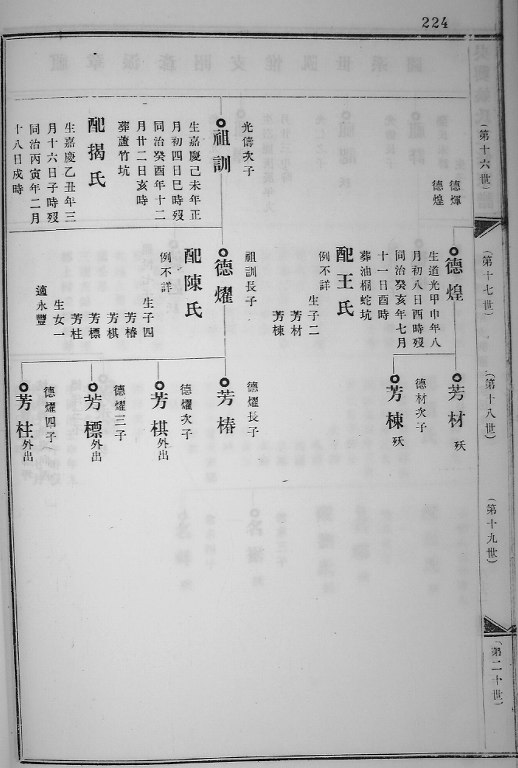 224
(第十六世)
(第十七世)
(第十八世)
(第十九世)
(第二十世)
德煇
德煌
光儔次子
祖訓
生嘉慶己未年正
月初四日巳時歿
同治癸酉年十二
月廿二日亥時
葬蘆竹坑
配揭氏
生嘉慶乙丑年三
月十六日子時歿
同治丙寅年二月
十八日戌時
德煌
生道光甲申年八
月初八日酉時歿
同治癸亥年七月
十一日酉時
葬油榈蛇坑
配王氏
例不詳
生子二
芳材
芳棟
祖訓長子
德燿
配陳氏
例不詳
生子四
芳椿
芳棋
芳標
芳柱
生女一
適永豐
芳材 殀
德材次子
芳棟 殀
德燿長子
芳椿
德燿次子
芳棋外出
德燿三子
芳標外出
德燿四子
芳柱外出